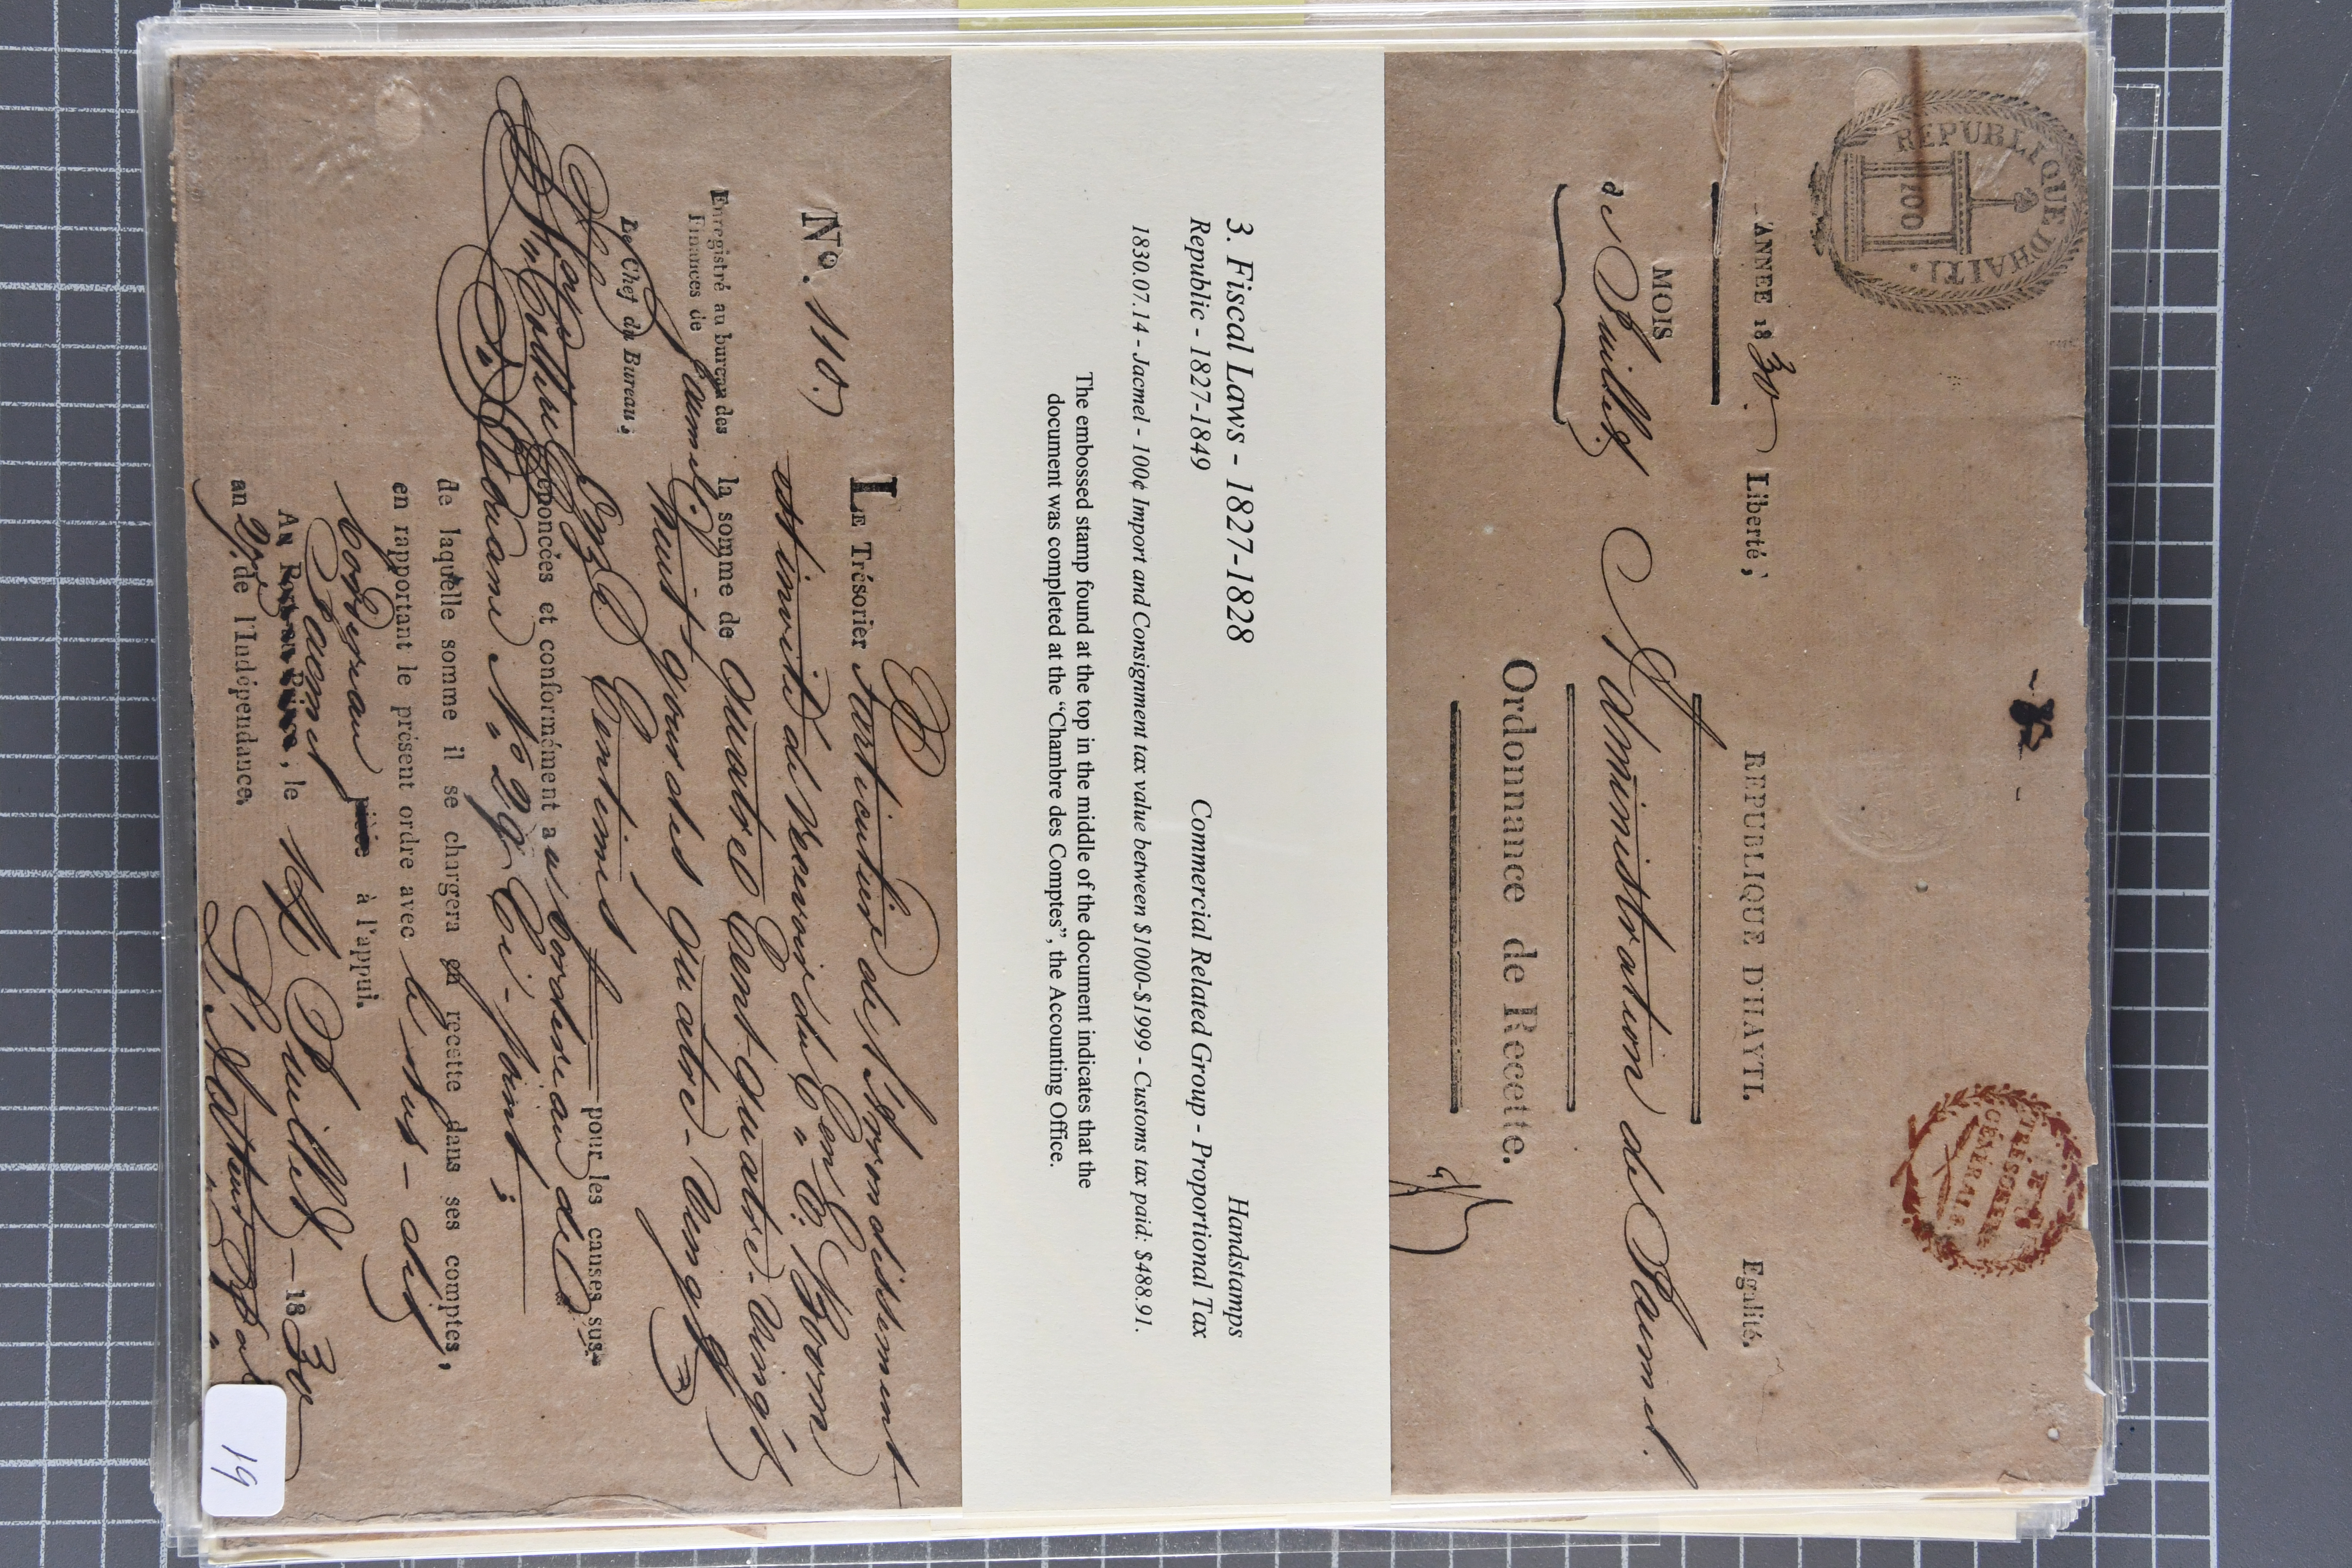 REPUBLIQUE D'HAITI.
100
TRÉSORERIE
GÉNÉRALE
ANNÉE 1830. Liberté, REPUBLIQUE D'HAYTI. Egalité.
MOIS
de Juillet
Administration de Jacmel.
Ordonnance de Recette.
3. Fiscal Laws - 1827-1828 Handstamps
Republic - 1827-1849 Commercial Related Group - Proportional Tax
1830.07.14 - Jacmel - 100¢ Import and Consignment tax value between $1000-$1999 - Customs tax paid: $488.91.
The embossed stamp found at the top in the middle of the document indicates that the
document was completed at the "Chambre des Comptes", the Accounting Office.
N.º 110.
LE Trésorier Particulier de l'Arrondissement
est invité de recevoir du
la somme de Quatre Cent quatre-vingt
huit gourdes quatre-vingt
Onze Centimes pour les causes sus-
énoncées et conformément au bordereau de
Douane N.º 29 Ci-joint;
de laquelle somme il se chargera en recette dans ses comptes,
en rapportant le présent ordre avec le sus-dit
bordereau pièce à l'appui.
Jacmel
Au Port-au-Prince, le 14 Juillet 1830
an 27.e de l'Indépendance.
Enregistré au bureau des
Finances de Jacmel
Le Chef du Bureau,
19